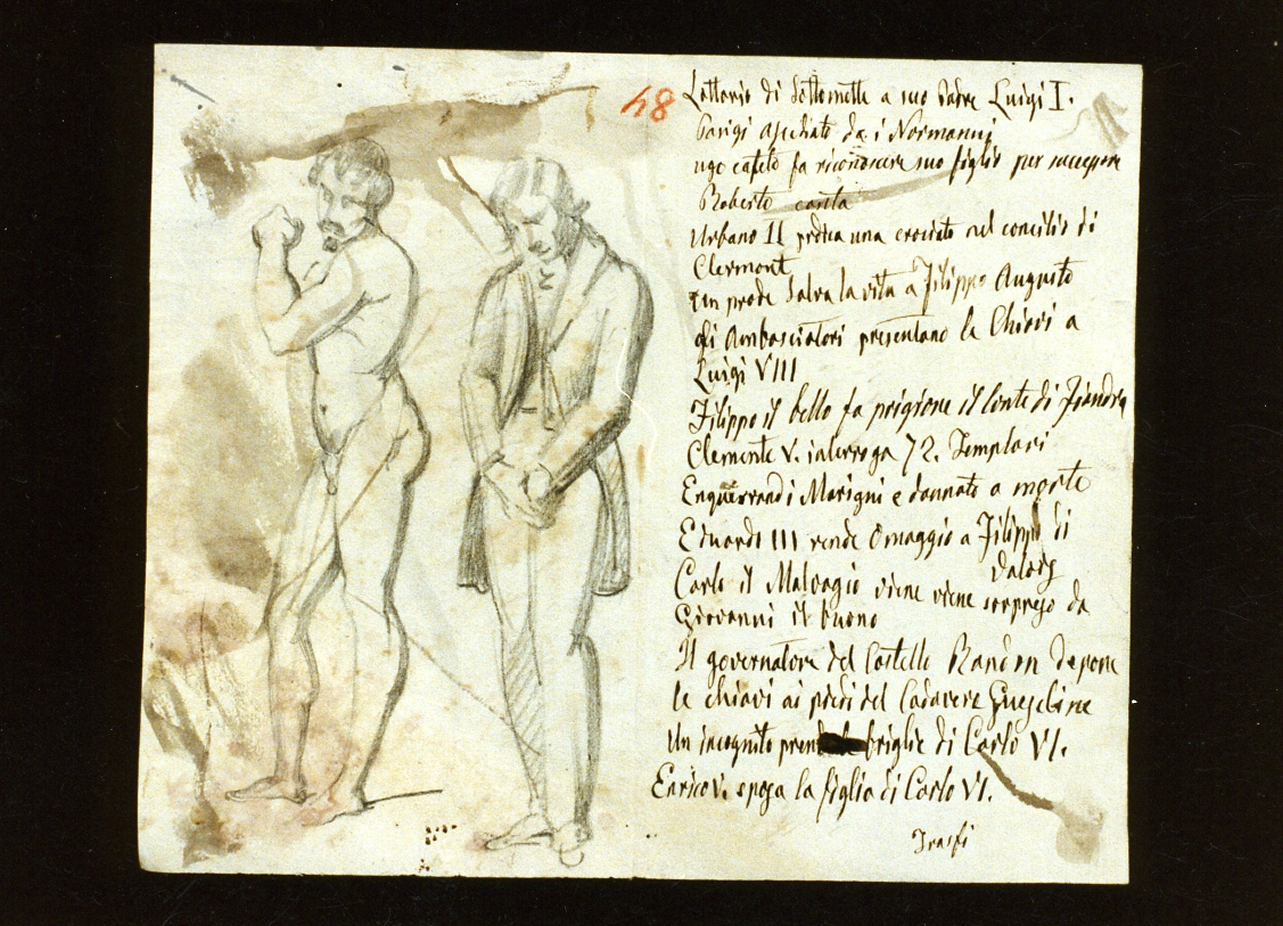 48
Lottario di Sottomette a suo Padre Luigi I.
Parigi assediato da i Normanni
ugo capeto fa riconoscere suo figlio per successore
Roberto canta
Urbano II predica una crociato nel concilio di
Clermont
un prode Salva la vita a Filippo Augusto
gli Ambasciatori presentano le Chiavi a
Luigi VIII
Filippo il bello fa prigione il Conte di Fiandra
Clemente V. interroga 72. Templari
Enguerrandi Marigni e dannato a morte
Eduardo III rende Omaggio a Filippo di
Valois
Carlo il Malvagio viene viene sorpreso da
Giovanni il buono
Il governatore del Castello Randon depone
le chiavi ai piedi del Cadavere Guescline
Un incognito prende briglie di Carlo VI.
Enrico V. sposa la figlia di Carlo VI.